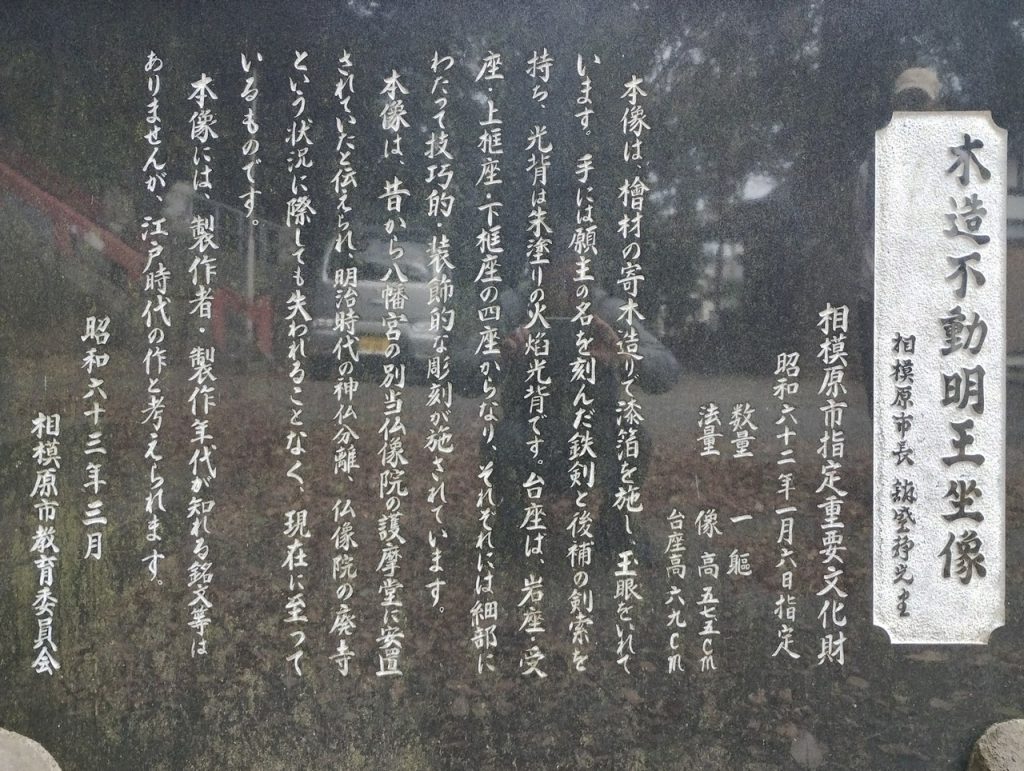 木造不動明王坐像
相模原市長 舘盛静光書
相模原市指定重要文化財
昭和六十二年一月六日指定
数量 一 軀
法量 像 高 五七・五cm
台座高 六九cm
本像は、檜材の寄木造りで漆箔を施し、玉眼をいれて
います。手には願主の名を刻んだ鉄剣と後補の剣索を
持ち、光背は朱塗りの火焰光背です。台座は、岩座・受
座・上框座・下框座の四座からなり、それぞれには細部に
わたって技巧的・装飾的な彫刻が施されています。
本像は、昔から八幡宮の別当仏像院の護摩堂に安置
されていたと伝えられ、明治時代の神仏分離、仏像院の廃寺
という状況に際しても失われることなく、現在に至って
いるものです。
本像には、製作者・製作年代が知れる銘文等は
ありませんが、江戸時代の作と考えられます。
昭和六十三年三月
相模原市教育委員会